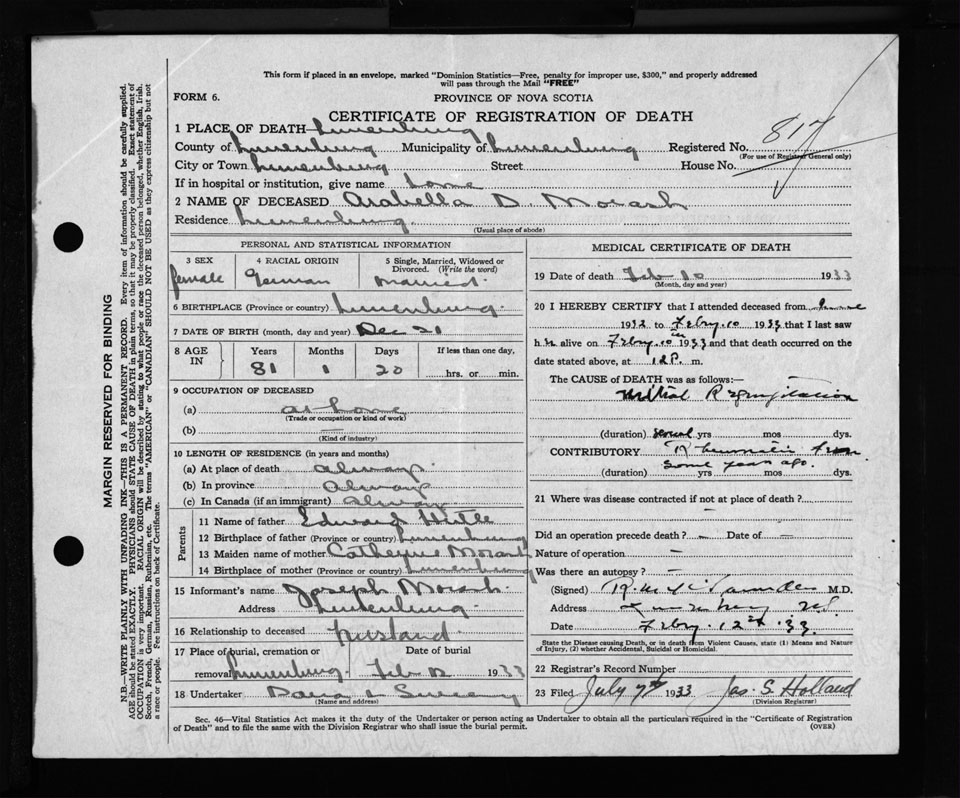 This form if placed in an envelope, marked "Dominion Statistics—Free, penalty for improper use, $300," and properly addressed
will pass through the Mail "FREE"
FORM 6.
PROVINCE OF NOVA SCOTIA
CERTIFICATE OF REGISTRATION OF DEATH
1 PLACE OF DEATH Lunenburg
County of Lunenburg Municipality of Lunenburg Registered No. 817
(For use of Registrar General only)
City or Town Lunenburg Street House No.
If in hospital or institution, give name home
2 NAME OF DECEASED Arabella D. Morash
Residence Lunenburg
(Usual place of abode)
PERSONAL AND STATISTICAL INFORMATION
3 SEX female
4 RACIAL ORIGIN German
5 Single, Married, Widowed or
Divorced. (Write the word)
Married
6 BIRTHPLACE (Province or country) Lunenburg
7 DATE OF BIRTH (month, day and year) Dec 21
8 AGE IN
Years Months Days If less than one day,
81 1 20 hrs. or min.
9 OCCUPATION OF DECEASED
(a) at home
(Trade or occupation or kind of work)
(b) —
(Kind of industry)
10 LENGTH OF RESIDENCE (in years and months)
(a) At place of death always
(b) In province always
(c) In Canada (if an immigrant) always
Parents
11 Name of father Edward
12 Birthplace of father (Province or country) Lunenburg
13 Maiden name of mother Catheyrne Morash
14 Birthplace of mother (Province or country) Lunenburg
15 Informant's name Joseph Morash
Address Lunenburg
16 Relationship to deceased husband
17 Place of burial, cremation or Date of burial
removal Lunenburg Feb 12 1933
18 Undertaker
(Name and address)
MEDICAL CERTIFICATE OF DEATH
19 Date of death Feb 10 1933
(Month, day and year)
20 I HEREBY CERTIFY that I attended deceased from June
1932 to Febry. 10 1933 that I last saw
h alive on Febry. 10 1933 and that death occurred on
the date stated above, at 12 P. m.
The CAUSE OF DEATH was as follows:—
Mitral Regurgitation
(duration) several yrs mos dys.
CONTRIBUTORY Rheumatic Fever
some years ago.
(duration) yrs mos dys.
21 Where was disease contracted if not at place of death?
Did an operation precede death? — Date of —
Nature of operation —
Was there an autopsy? —
(Signed) M.D.
Address Lunenburg N.S.
Date Febry. 12th .33.
State the Disease causing Death, or in death from Violent Causes, state (1) Means and Nature
of Injury, (2) whether Accidental, Suicidal or Homicidal.
22 Registrar's Record Number
23 Filed July 7th 1933 Jas. S. Holland
(Division Registrar)
Sec. 46—Vital Statistics Act makes it the duty of the Undertaker or person acting as Undertaker to obtain all the particulars required in the "Certificate of Registration
of Death" and to file the same with the Division Registrar who shall issue the burial permit.
(OVER)
MARGIN RESERVED FOR BINDING
N.B.—WRITE PLAINLY WITH UNFADING INK—THIS IS A PERMANENT RECORD. Every item of information should be carefully supplied.
AGE should be stated EXACTLY. PHYSICIANS should STATE CAUSE OF DEATH in plain terms, so that it may be properly classified. Exact statement of
OCCUPATION is very important. RACIAL ORIGIN will be described by stating to what people or race the deceased person belonged, whether English, Irish,
Scotch, French, German, Russian, Ruthenian, etc. The terms "AMERICAN" or "CANADIAN" SHOULD NOT BE USED as they express citizenship but not
a race or people. See instructions on back of Certificate.